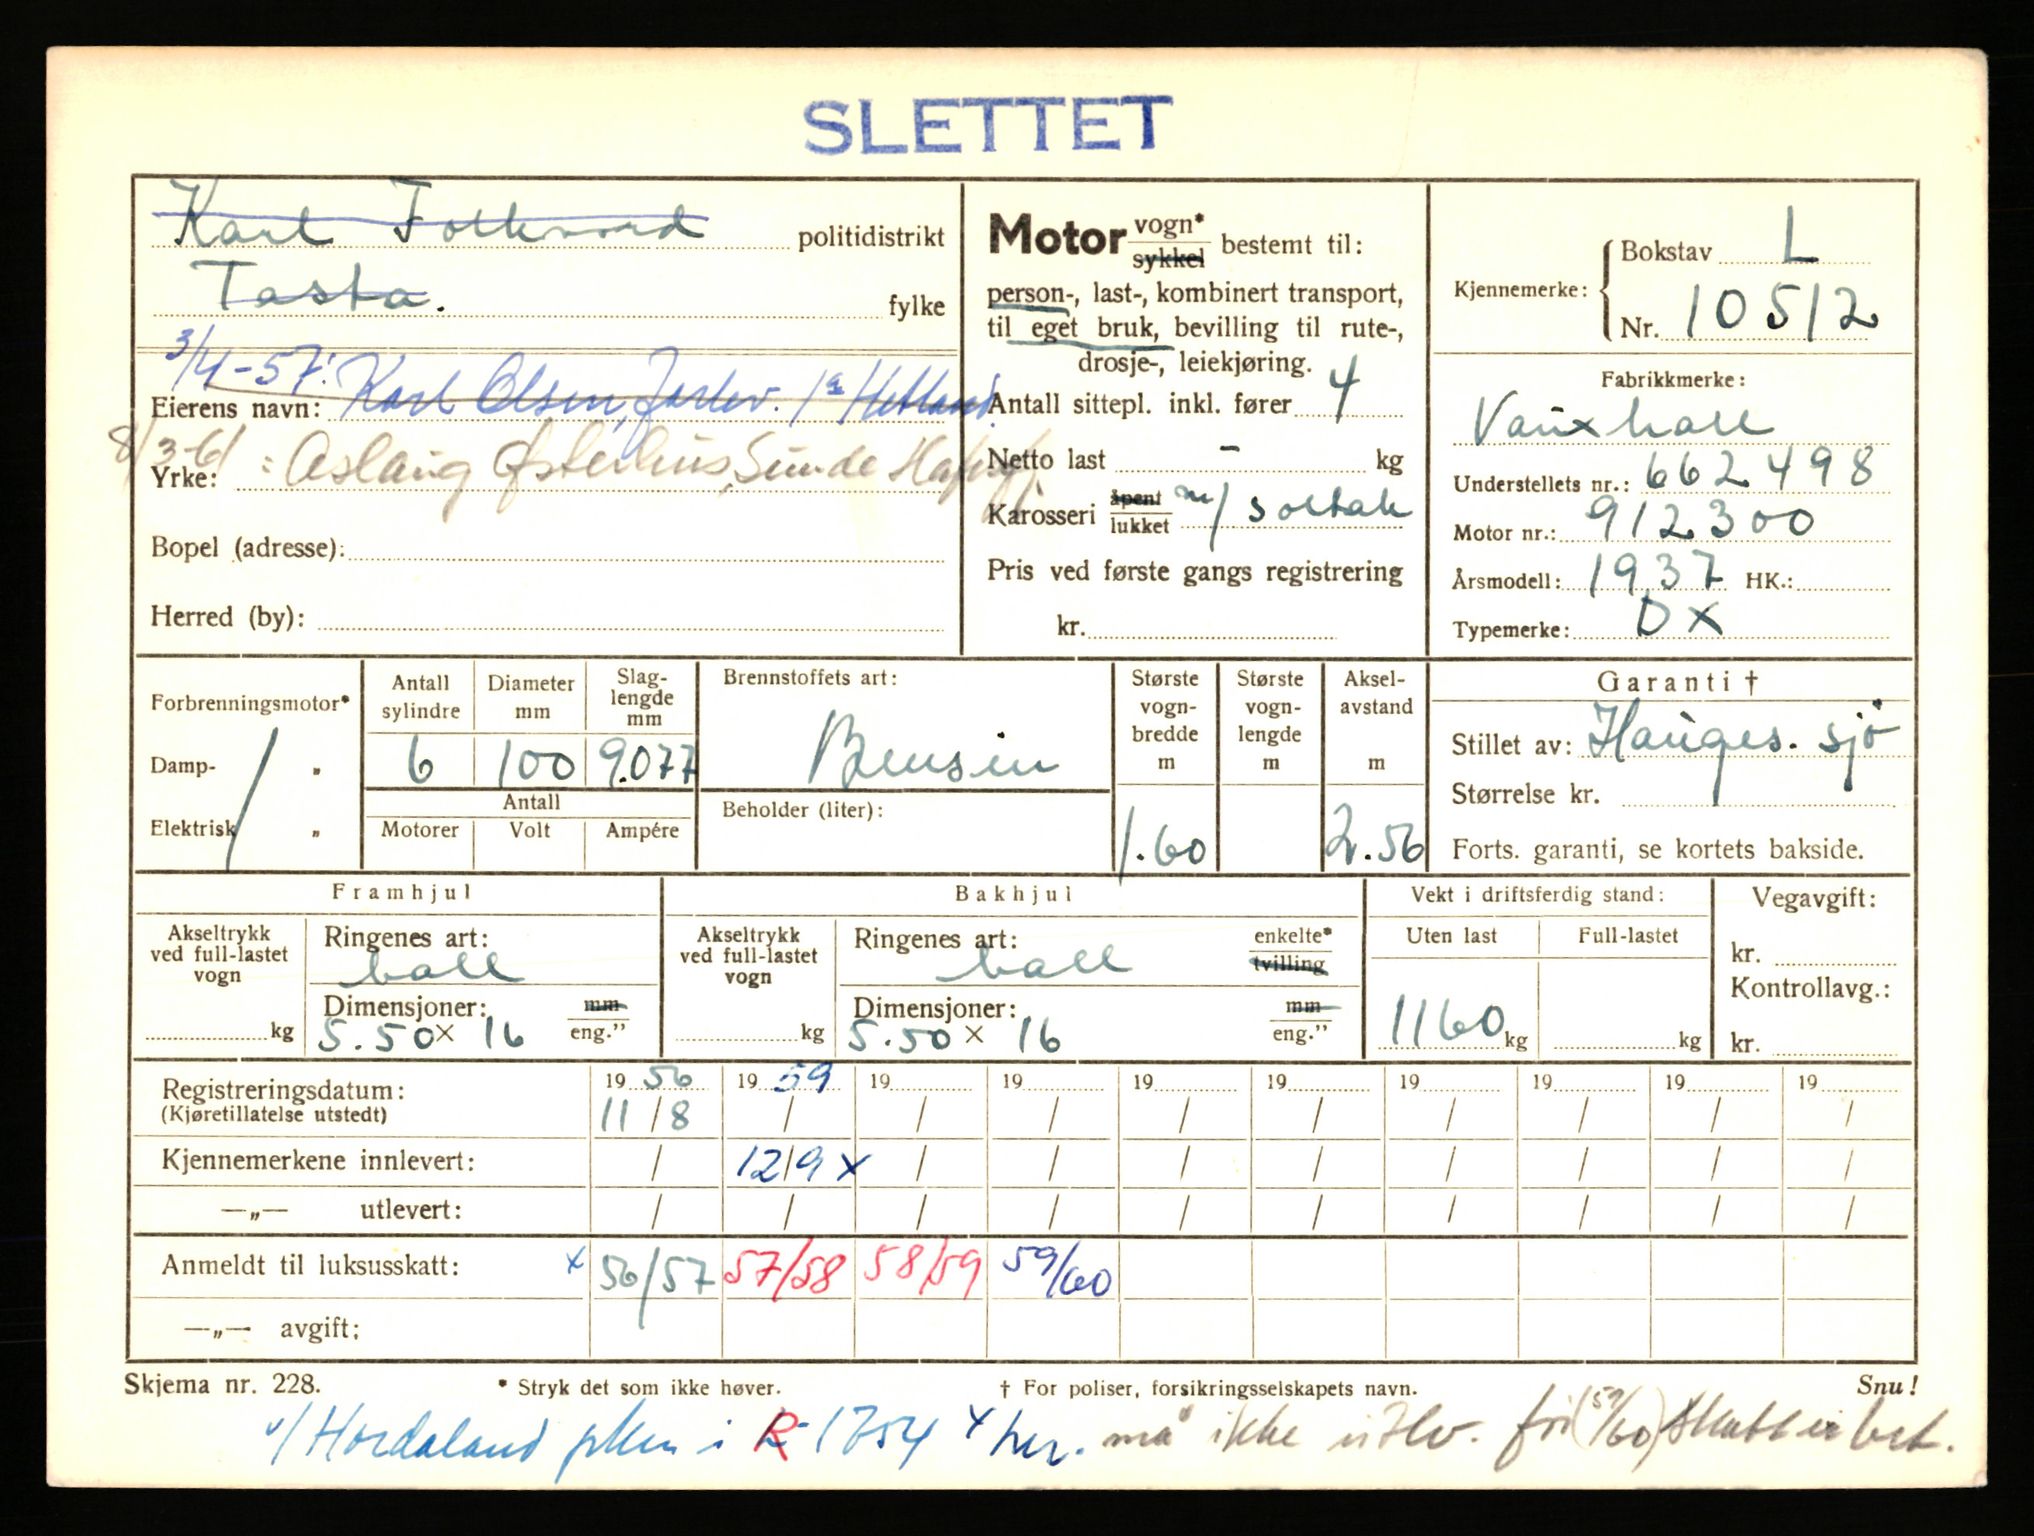 SLETTET
Karl Folkvord politidistrikt
Tasta. fylke
3/4-57: Karl Olsen,
Eierens navn: Hetland.
8/3-61: Aslaug Østerhus, Sunde Hafrsfj.
Yrke:
Bopel (adresse):
Herred (by):
Motor vogn* sykkel bestemt til:
person-, last-, kombinert transport,
til eget bruk, bevilling til rute-,
drosje-, leiekjøring.
Antall sittepl. inkl. fører 4
Netto last - kg
Karosseri åpent lukket m/ soltak
Pris ved første gangs registrering
kr.
Kjennemerke: Bokstav L
Nr. 10512
Fabrikkmerke:
Vauxhall
Understellets nr.: 662498
Motor nr.: 912300
Årsmodell: 1937 HK.:
Typemerke: DX
Forbrenningsmotor*
Damp- „
Elektrisk „
Antall sylindre 6
Diameter mm 100
Slag-lengde mm 9.077
Antall
Motorer Volt Ampére
Brennstoffets art:
Bensin
Beholder (liter):
Største vogn-bredde m 1.60
Største vogn-lengde m
Aksel-avstand m 2.56
Garanti †
Stillet av: Hauges. sjø
Størrelse kr.
Forts. garanti, se kortets bakside.
Framhjul
Akseltrykk ved full-lastet vogn kg
Ringenes art:
ball
Dimensjoner: mm
5.50 x 16 eng.”
Bakhjul
Akseltrykk ved full-lastet vogn kg
Ringenes art: enkelte*
ball tvilling
Dimensjoner: mm
5.50 x 16 eng.”
Vekt i driftsferdig stand:
Uten last Full-lastet
1160 kg kg
Vegavgift:
kr.
Kontrollavg.:
kr.
Registreringsdatum: 19 56 19 59 19 19 19 19 19 19 19 19
(Kjøretillatelse utstedt) 11/8 / / / / / / / / /
Kjennemerkene innlevert: / 12/9 x / / / / / / / /
—„— utlevert: / / / / / / / / / /
Anmeldt til luksusskatt: x 56/57 57/58 58/59 59/60
—„— avgift:
Skjema nr. 228. * Stryk det som ikke høver. † For poliser, forsikringsselskapets navn. Snu!
v/ Hordaland i R-1754 x må ikke utlev. før (59/60) skatt er bet.